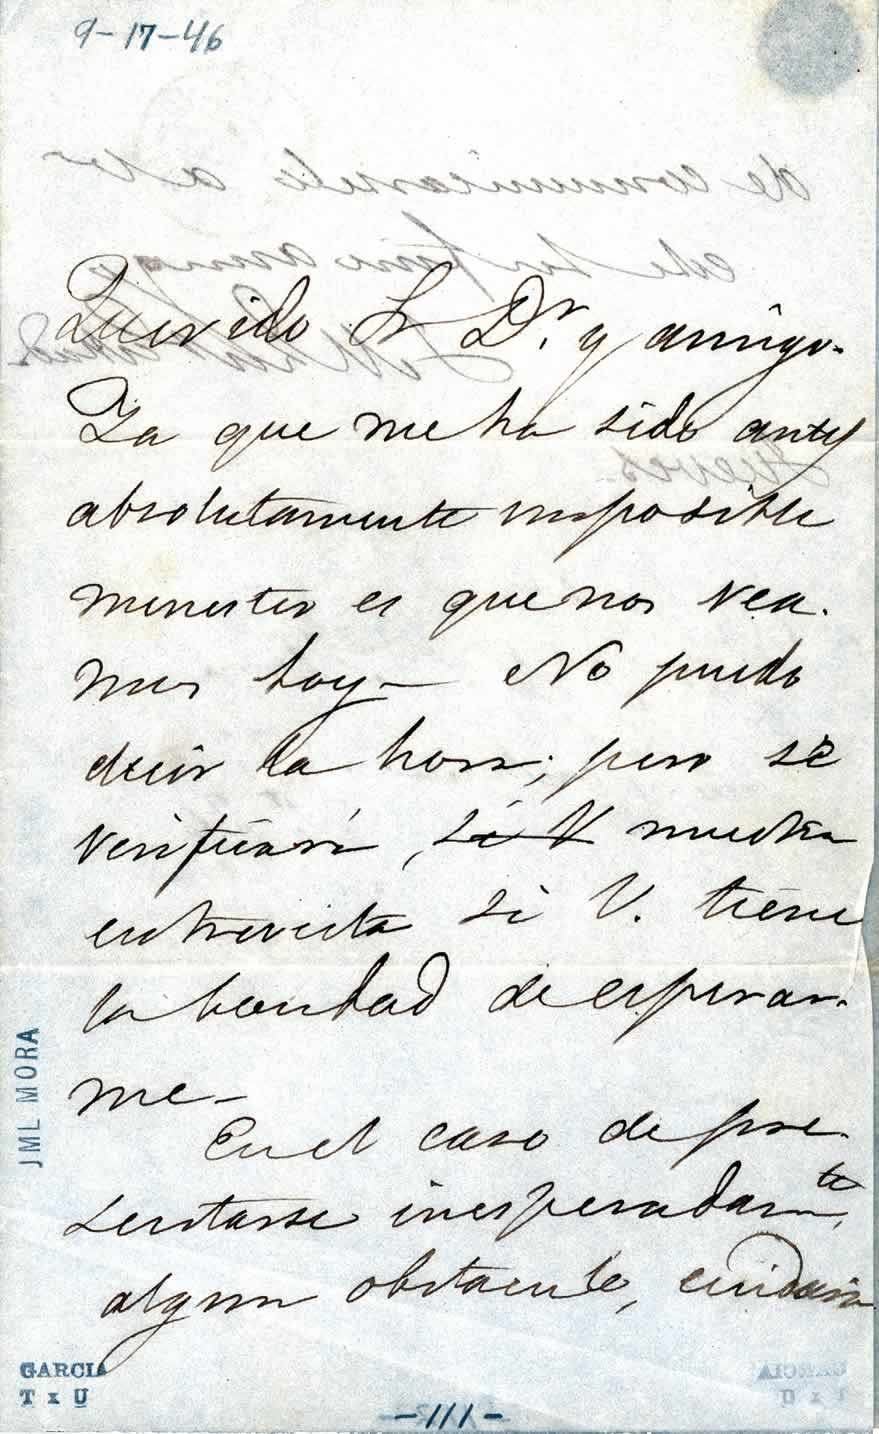 9-17-46
Querido Sr Dr. y amigo.
Ya que me ha sido antes
absolutamente imposible
menester es que nos vea-
mos hoy— No puedo
decir la hora; pero se
verificará, si V nuestra
entrevista si V. tiene
la bondad de esperar-
me—
En el caso de pre-
sentarse inesperadamte
algun obstaculo, cuidaria
de comunicarselo a V
este su fino amigo
Jueves
JML MORA
GARCIA
T x U
-111-